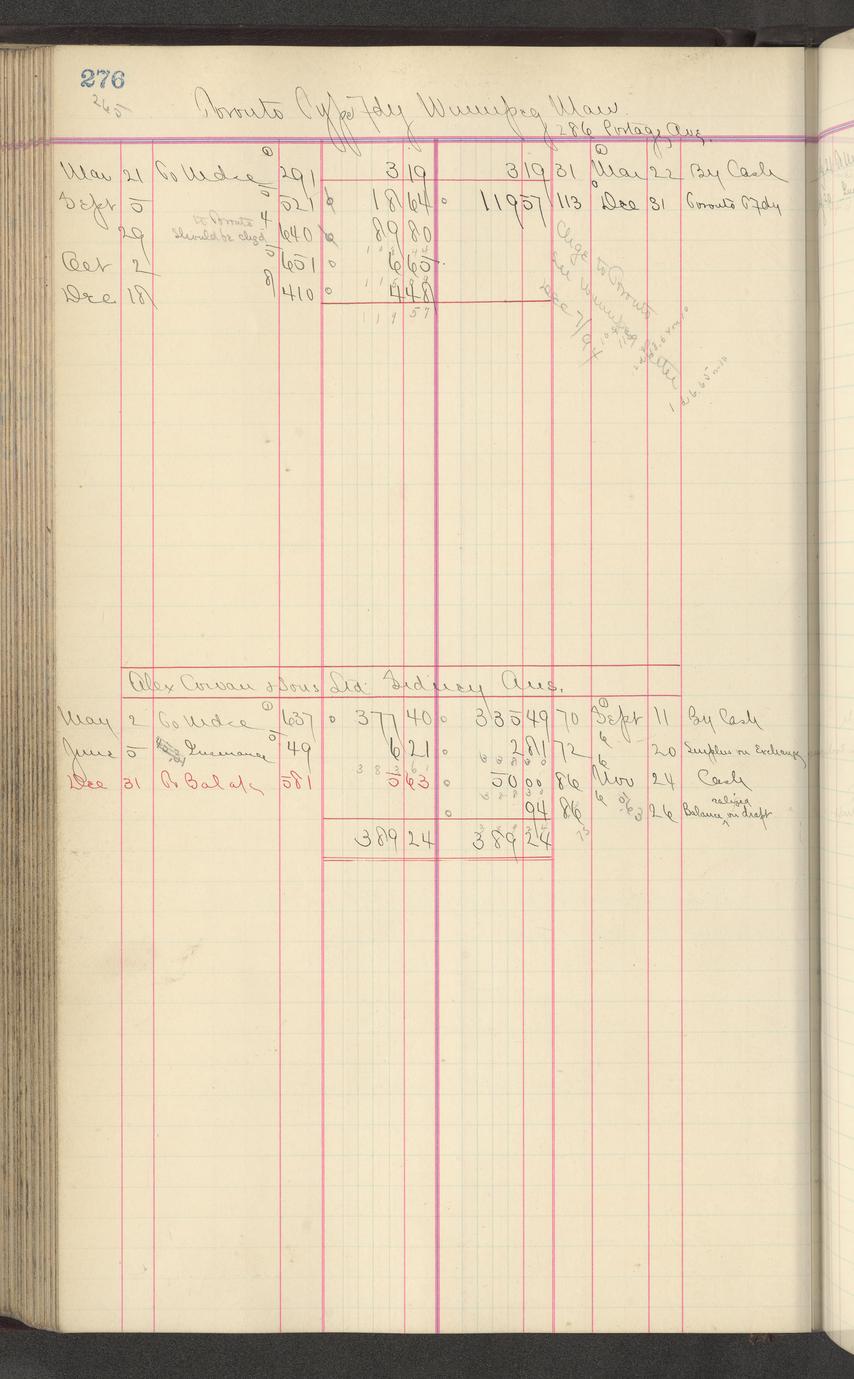 276
265
Toronto Type Fdy Winnipeg Man
286 Portage Ave.
Mar 21 To Mdse 1 291 3 19 3 19 31 1 Mar 22 By Cash
Sept 5 5 521 18 64 119 57 113 Dec 31 Toronto T Fdy
29 to Toronto should be chgd 4 640 89 80
Oct 2 5 651 6 65
Dec 18 8 410 4 48
119 57
Chge to Toronto
see Winnipeg letter
Dec 7/94
Alex Cowan & Sons Ltd. Sidney Aus.
May 2 To Mdse 1 637 377 40 335 49 70 1 Sept 11 By Cash
June 5 Insurance 5 49 6 21 2 81 72 6 20 Surplus on Exchange
383 61
Dec 31 To Bal at 581 5 63 50 00 86 6 Nov 24 Cash
94 86 6 5/63 26 Balance realized on draft
389 24 389 24 73